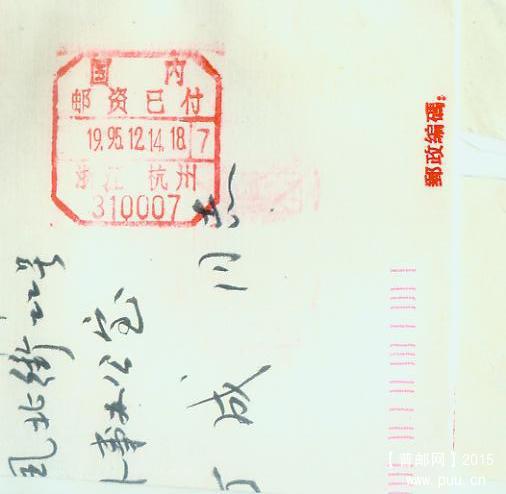 国内
邮资已付
19.95.12.14.18 7
浙江 杭州
310007
郵政编碼:
北街
事办公室
成
【普邮网】2015
www.puu.cn